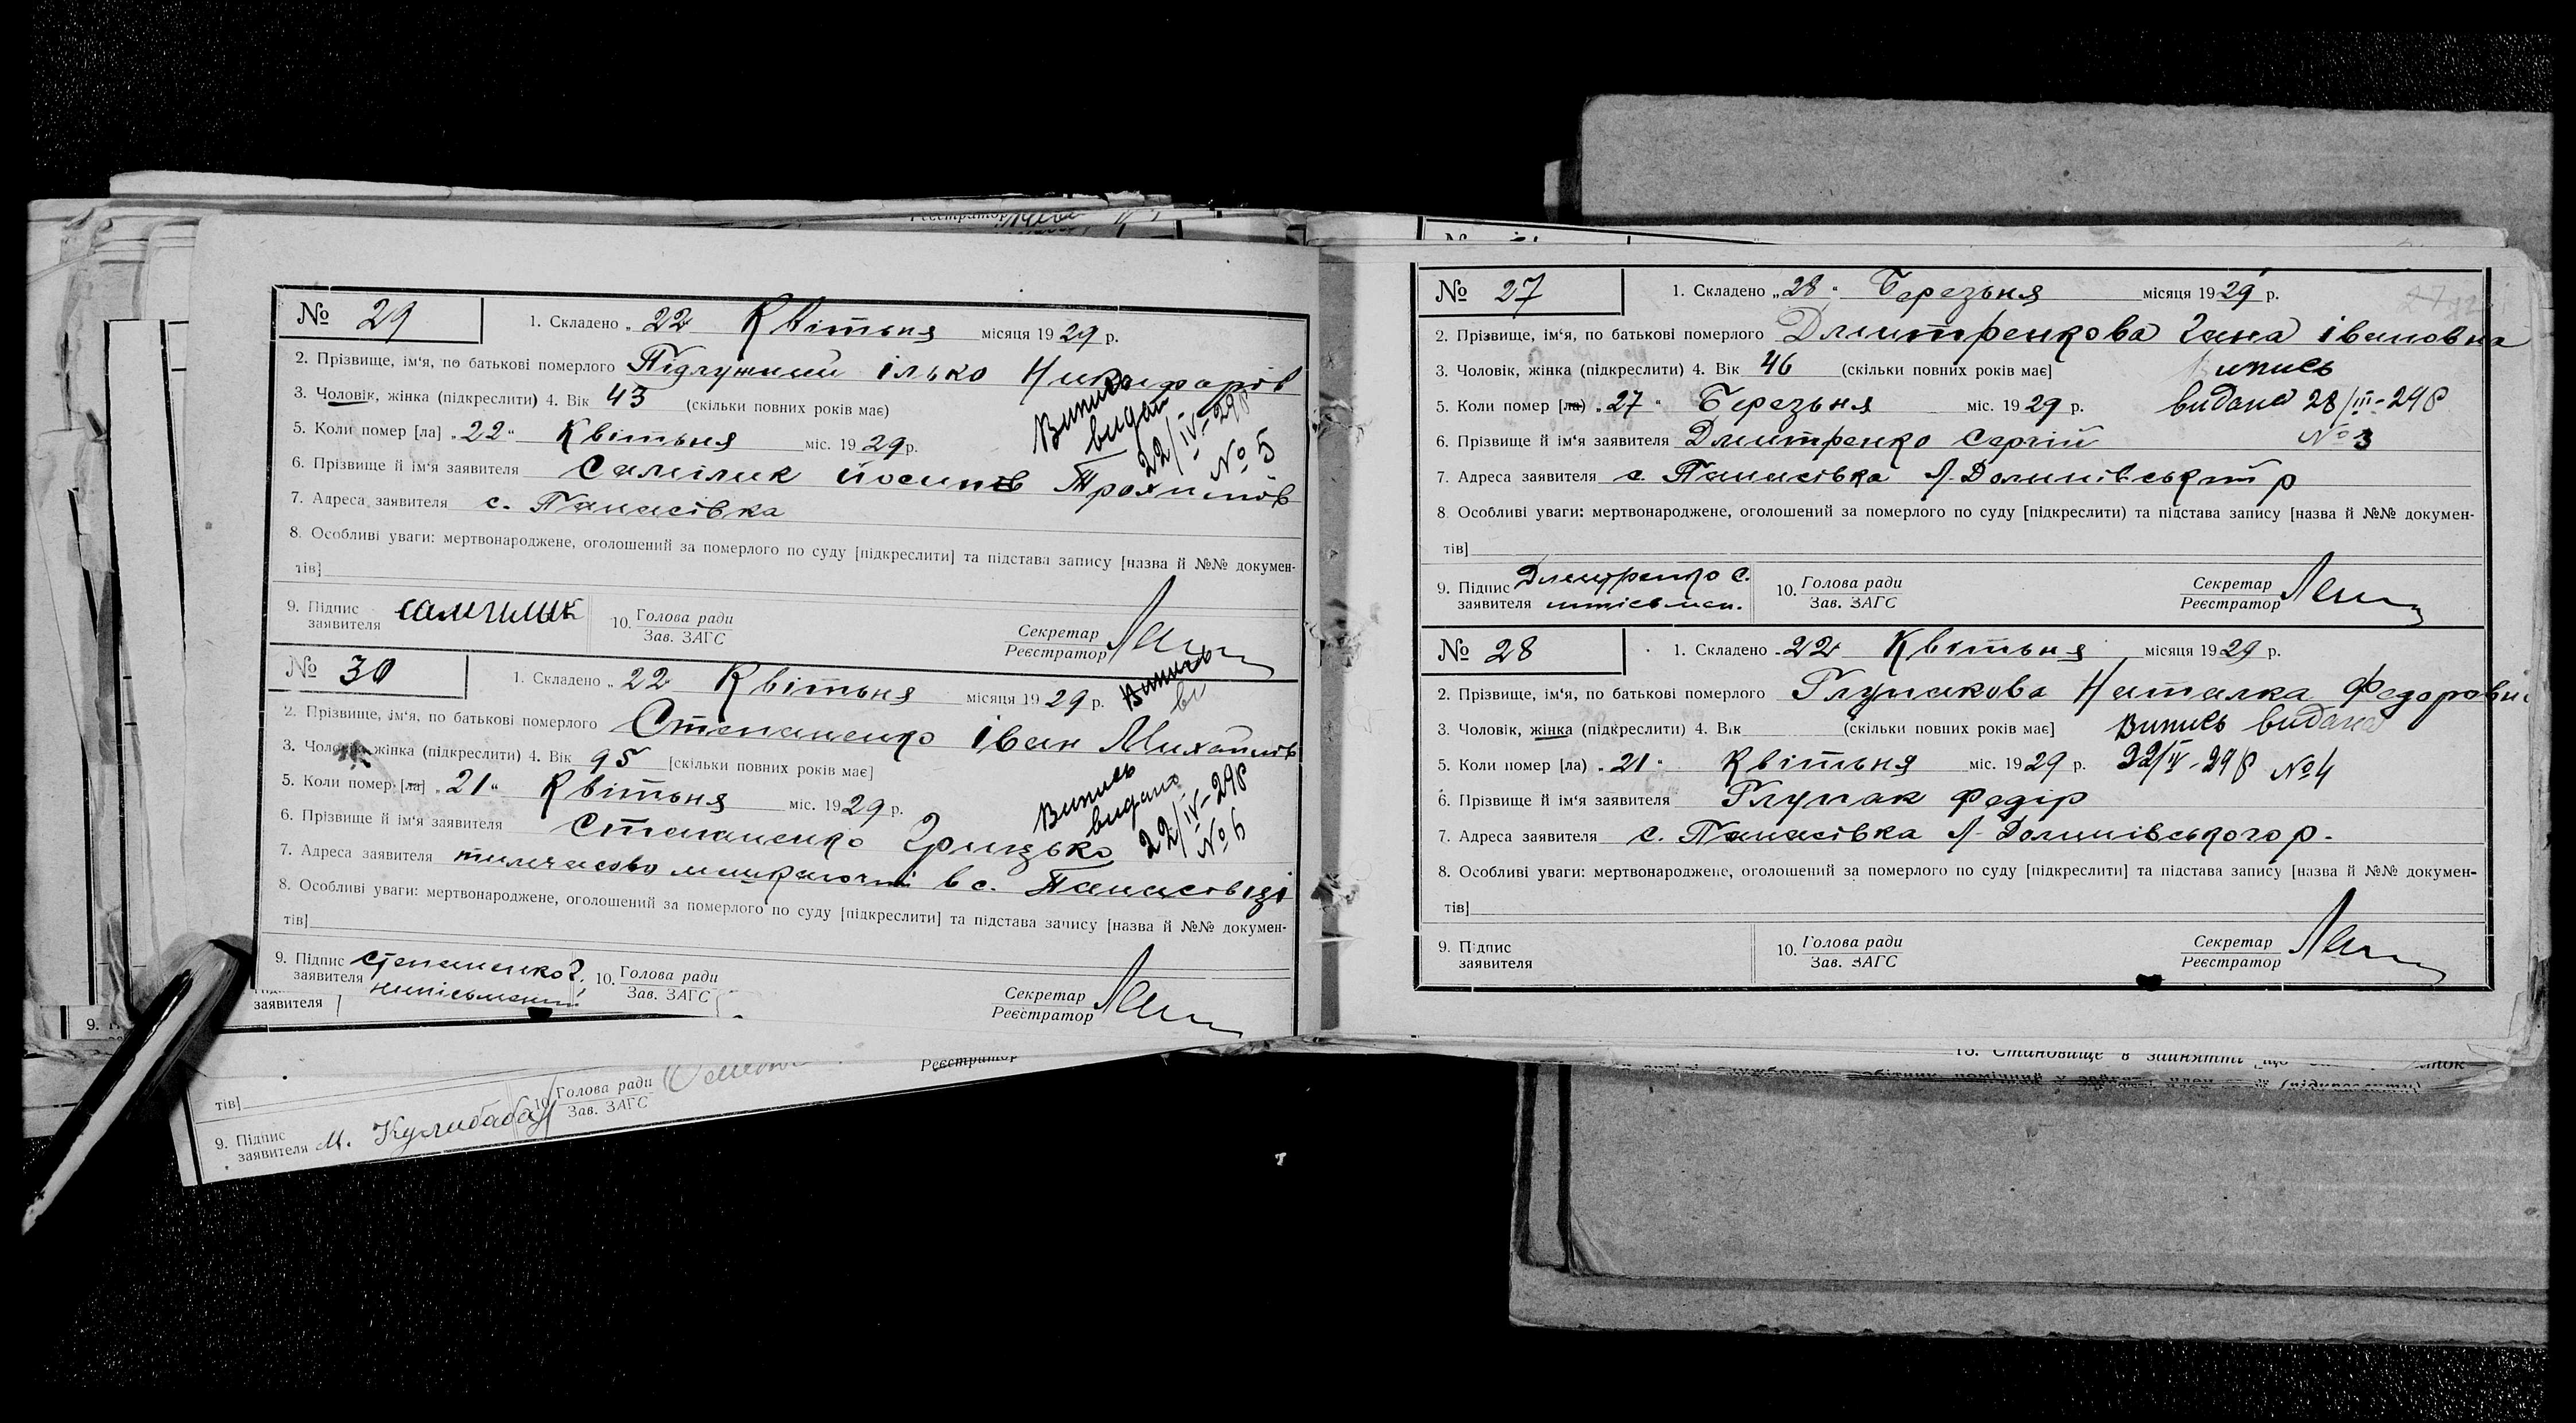 № 29
1. Складено „ 22 Квітьня місяця 1929 р.
2. Прізвище, ім'я, по батькові померлого Підлужний ілько Никифорів
3. Чоловік, жінка (підкреслити) 4. Вік 43 (скільки повних років має)
Випись
видан
22/IV-29р
№ 5
5. Коли помер [ла] „22“ Квітьня міс. 1929 р.
6. Прізвище й ім'я заявителя Самілик Йосипів Трохимів
7. Адреса заявителя с. Панасівка
8. Особливі уваги: мертвонароджене, оголошений за померлого по суду [підкреслити] та підстава запису [назва й №№ докумен-
тів]
9. Підпис
заявителя
10. Голова ради
Зав. ЗАГС
Секретар
Реєстратор
№ 30
1. Складено „ 22 Квітьня місяця 1929 р. Випись
ви
2. Прізвище, ім'я, по батькові померлого Степаненко іван Михайлів
3. Чоловік, жінка (підкреслити) 4. Вік 95 [скільки повних років має]
5. Коли помер [ла] „21“ Квітьня міс. 1929 р.
Випись
видана
22/IV-29р
№ 6
6. Прізвище й ім'я заявителя Степаненко Грицько
7. Адреса заявителя тимчасово мешкаючий в с. Панасівці
8. Особливі уваги: мертвонароджене, оголошений за померлого по суду [підкреслити] та підстава запису [назва й №№ докумен-
тів]
9. Підпис Степаненко Г.
заявителя
10. Голова ради
Зав. ЗАГС
Секретар
Реєстратор
заявителя
Реєстратор
тів]
9. Підпис
заявителя М. Кулибаба
10. Голова ради
Зав. ЗАГС
№ 27
1. Складено „28“ Березьня місяця 1929 р.
2. Прізвище, ім'я, по батькові померлого Дмитренкова Гана івановна
3. Чоловік, жінка (підкреслити) 4. Вік 46 (скільки повних років має]
Випись
5. Коли помер [ла) „27“ Березьня міс. 1929 р. видана 28/III-29р
№ 3
6. Прізвище й ім'я заявителя Дмитренко Сергій
7. Адреса заявителя с. Панасівка Л-Долинівськ р
8. Особливі уваги: мертвонароджене, оголошений за померлого по суду [підкреслити) та підстава запису [назва й №№ докумен-
тів]
9. Підпис Дмитренко С.
заявителя
10. Голова ради
Зав. ЗАГС
Секретар
Реєстратор
№ 28
1. Складено „22“ Квітьня місяця 1929 р.
2. Прізвище, ім'я, по батькові померлого Глупакова Наталка Федоровн
3. Чоловік, жінка (підкреслити) 4. Вік (скільки повних років має] Випись видана
5. Коли помер [ла) „21“ Квітьня міс. 1929 р. 22/IV-29р №4
6. Прізвище й ім'я заявителя Глупак Федір
7. Адреса заявителя с. Панасівка Л-Долинівського р.
8. Особливі уваги: мертвонароджене, оголошений за померлого по суду [підкреслити] та підстава запису [назва й №№ докумен-
тів]
9. Підпис
заявителя
10. Голова ради
Зав. ЗАГС
Секретар
Реєстратор